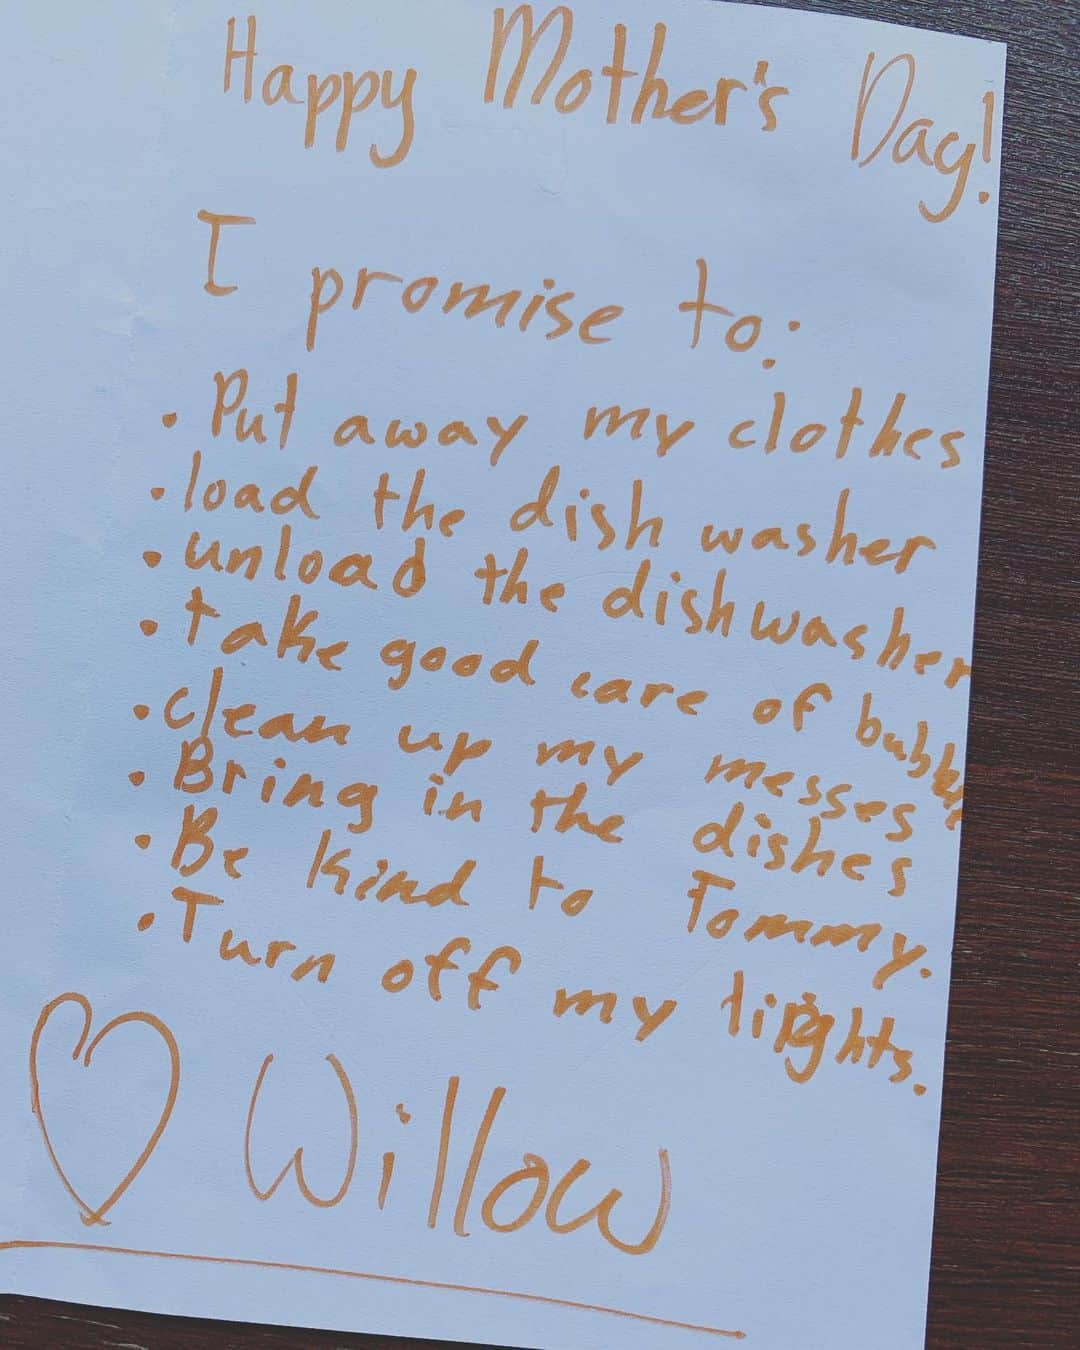 Happy Mother's Day!
I promise to:
• Put away my clothes
• load the dish washer
• unload the dishwasher
• take good care of
• clean up my messes
• Bring in the dishes
• Be kind to Tommy.
• Turn off my lights.
♡ Willow